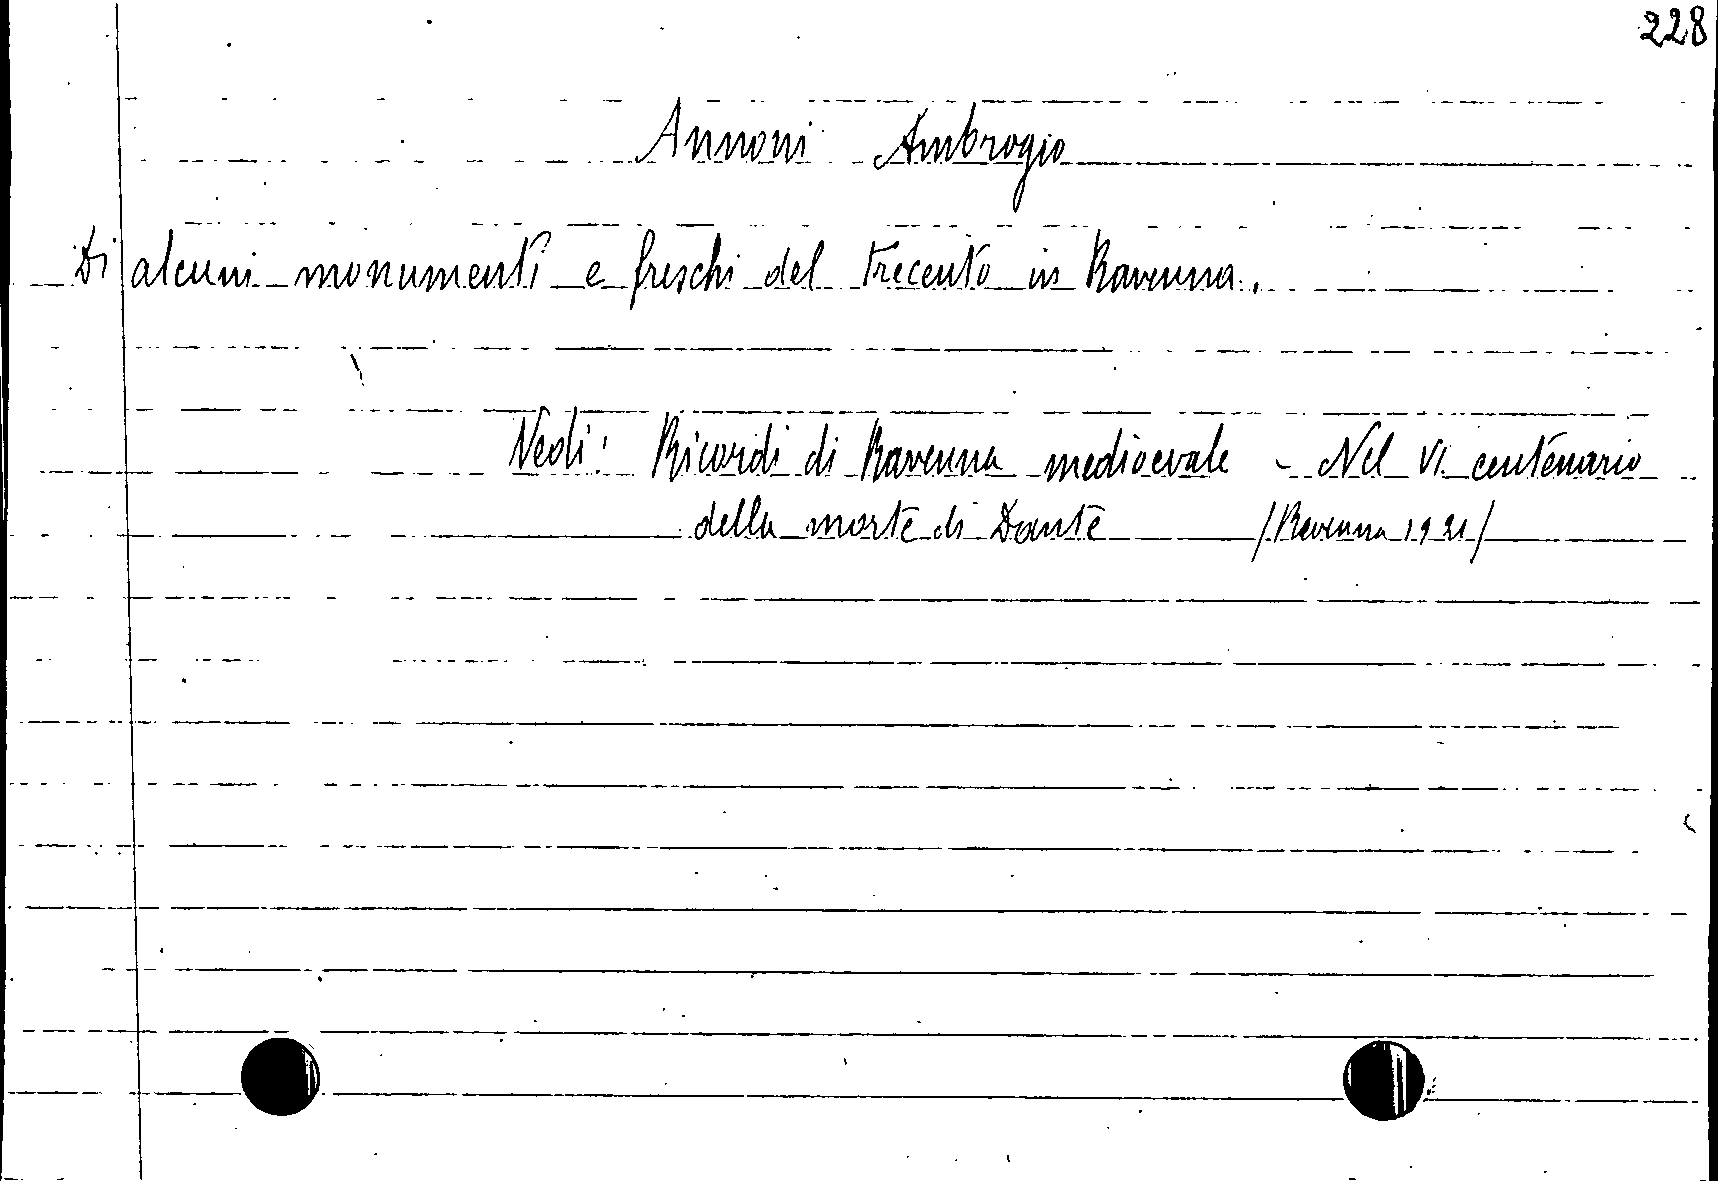 228
Annoni Ambrogio
Di alcuni monumenti e freschi del trecento in Ravenna.
Vedi: Ricordi di Ravenna medioevale - Nel VI centenario
della morte di Dante /Ravenna 1921/